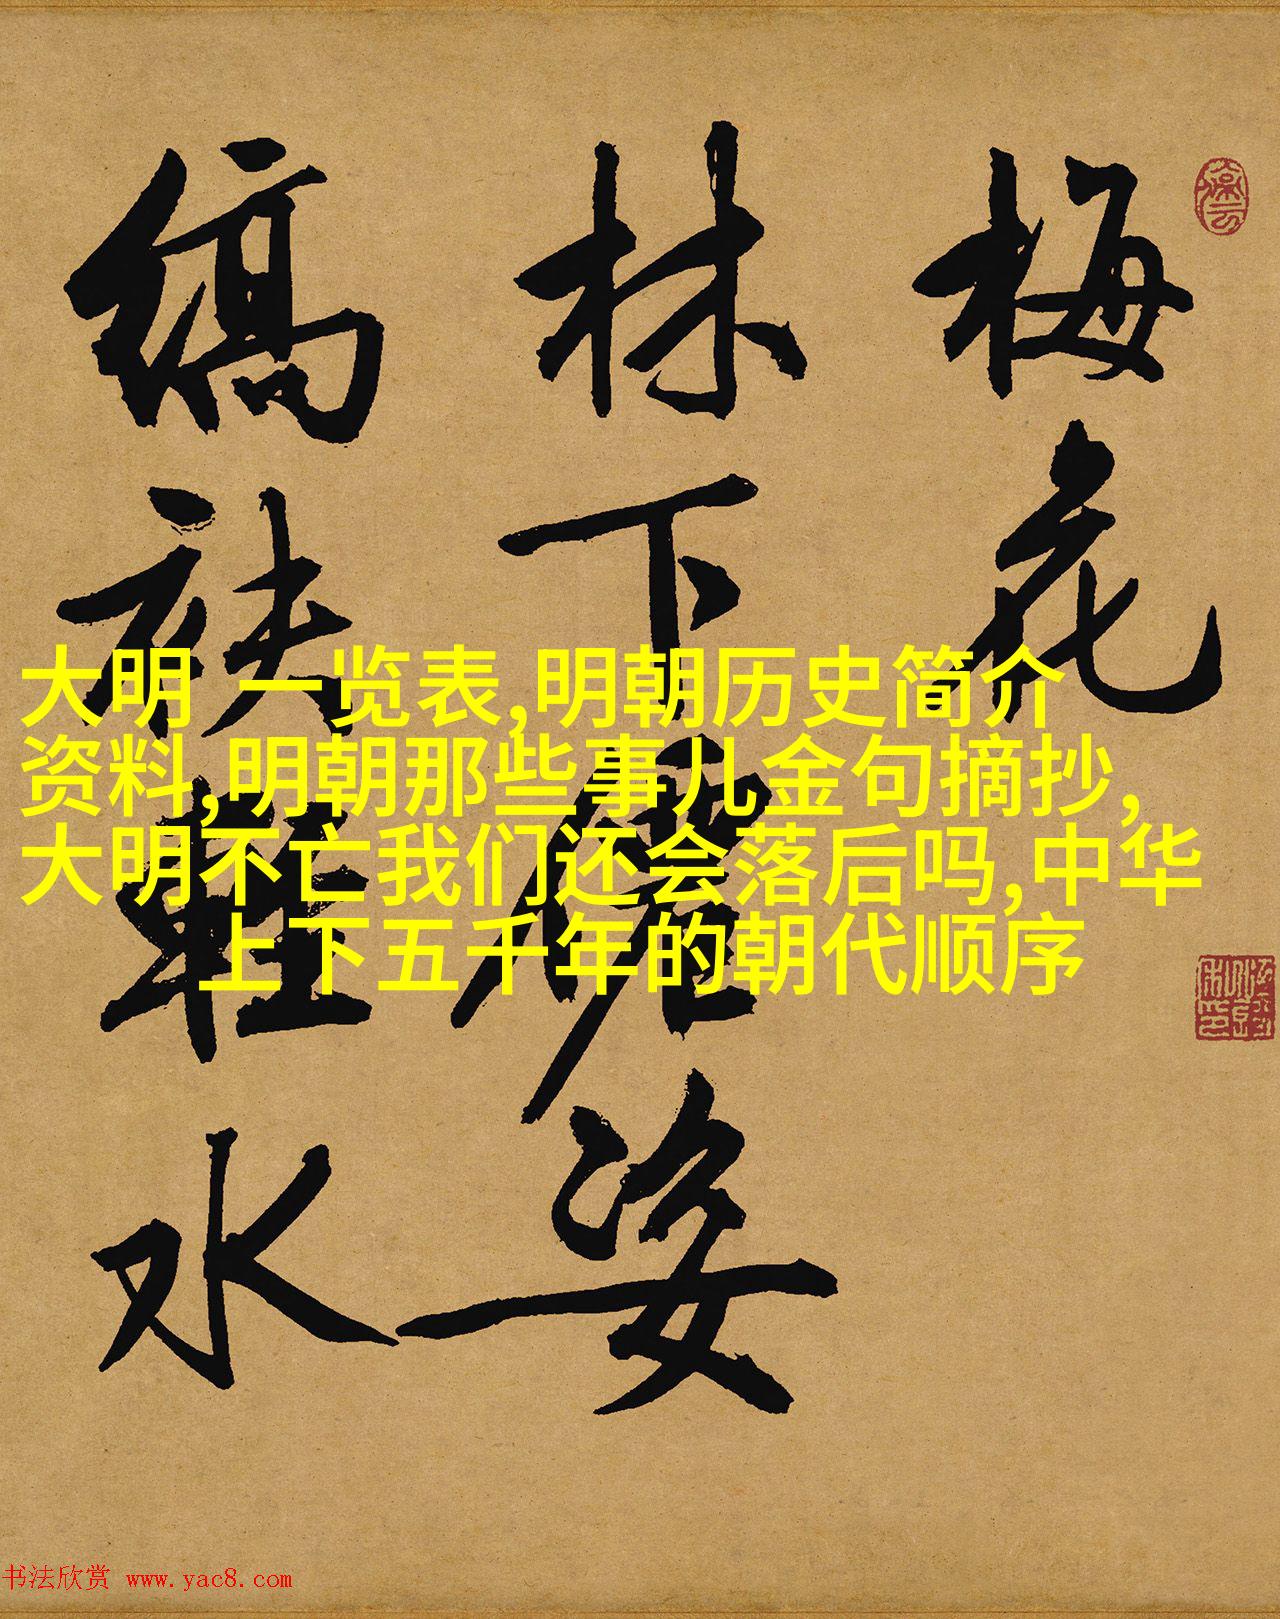 梅花
林下仙姿
缟袂轻水
大明 一览表,明朝历史简介
资料,明朝那些事儿金句摘抄,
大明不亡我们还会落后吗,中华
上下五千年的朝代顺序
书法欣赏 www.yac8.com